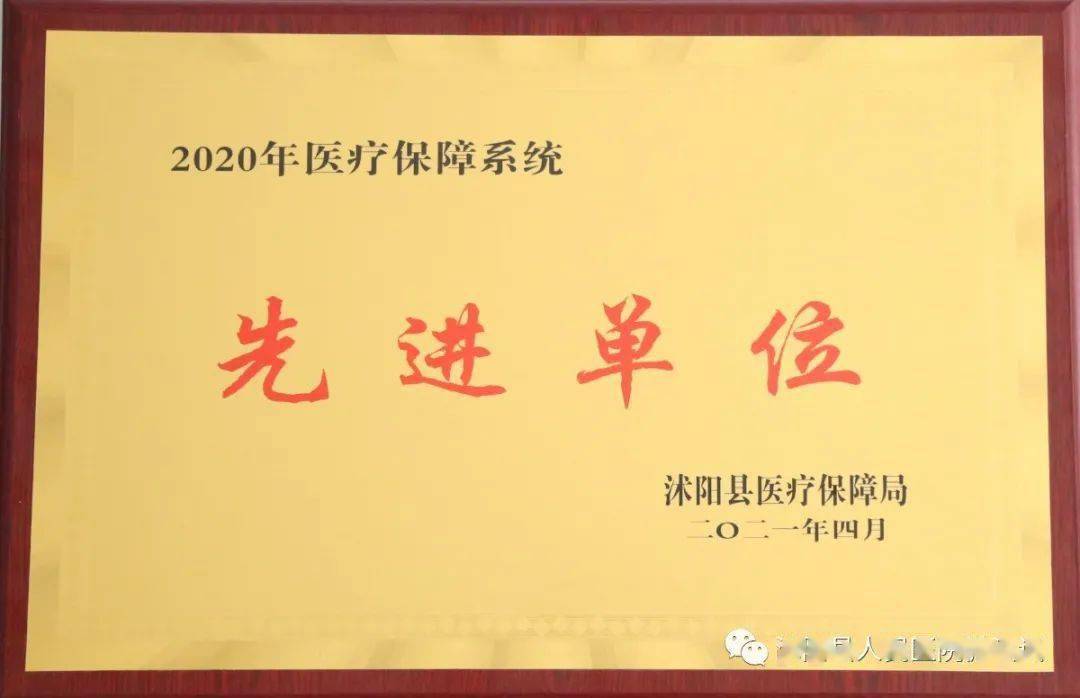 2020年医疗保障系统
先进单位
沭阳县医疗保障局
二〇二一年四月